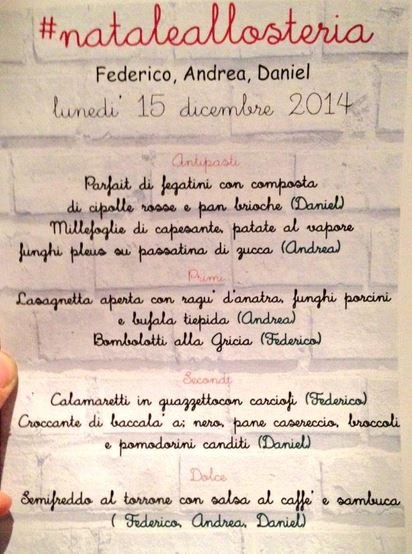 #nataleallosteria
Federico, Andrea, Daniel
lunedi' 15 dicembre 2014
Antipasti
Parfait di fegatini con composta
di cipolle rosse e pan brioche (Daniel)
Millefoglie di capesante, patate al vapore
funghi pleus su passatina di zucca (Andrea)
Primi
Lasagnetta aperta con ragu' d'anatra, funghi porcini
e bufala tiepida (Andrea)
Bombolotti alla Gricia (Federico)
Secondi
Calamaretti in guazzettocon carciofi (Federico)
Croccante di baccala' ai nero, pane casereccio, broccoli
e pomodorini canditi (Daniel)
Dolce
Semifreddo al torrone con salsa al caffe' e sambuca
( Federico, Andrea, Daniel)